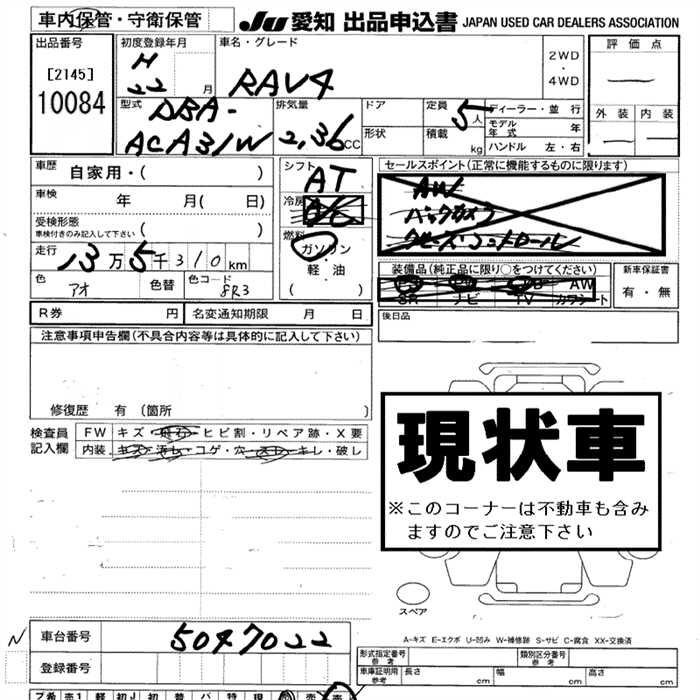 車内保管・守衛保管
JU 愛知 出品申込書 JAPAN USED CAR DEALERS ASSOCIATION
出品番号
[2145]
10084
初度登録年月
H
22 月
車名・グレード
RAV4
2WD
・
4WD
評価点
外装 内装
型式
DBA-
ACA31W
排気量
2,36 CC
ドア
形状
定員
5人
積載
kg
ディーラー・並行
モデル年式 年
ハンドル 左・右
車歴
自家用・( )
車検
年 月( 日)
受検形態
車検付きのみ記入して下さい ( )
走行
13万5千310km
色
アオ
色替
色コード
8R3
シフト
AT
冷房
燃料
ガソリン
・
軽油
( )
セールスポイント(正常に機能するものに限ります)
AW
バックカメラ
クルーズ・コントロール
装備品(純正品に限り○をつけてください)
AW
SR ナビ TV カワシート
新車保証書
有・無
R券 円
名変通知期限 月 日
後日品
注意事項申告欄(不具合内容等は具体的に記入して下さい)
修復歴 有(箇所 )
検査員
記入欄
FW キズ・飛石・ヒビ割・リペア跡・X要
内装 キズ・汚レ・コゲ・穴・スレ・キレ・破し
現状車
※このコーナーは不動車も含み
ますのでご注意下さい
スペア
A-キズ E-エクボ U-凹み W-補修跡 S-サビ C-腐食 XX-交換済
N
車台番号
5047022
登録番号
形式指定番号
参考
類別区分番号
参考
車庫証明用
参考
長さ cm 幅 cm 高さ cm